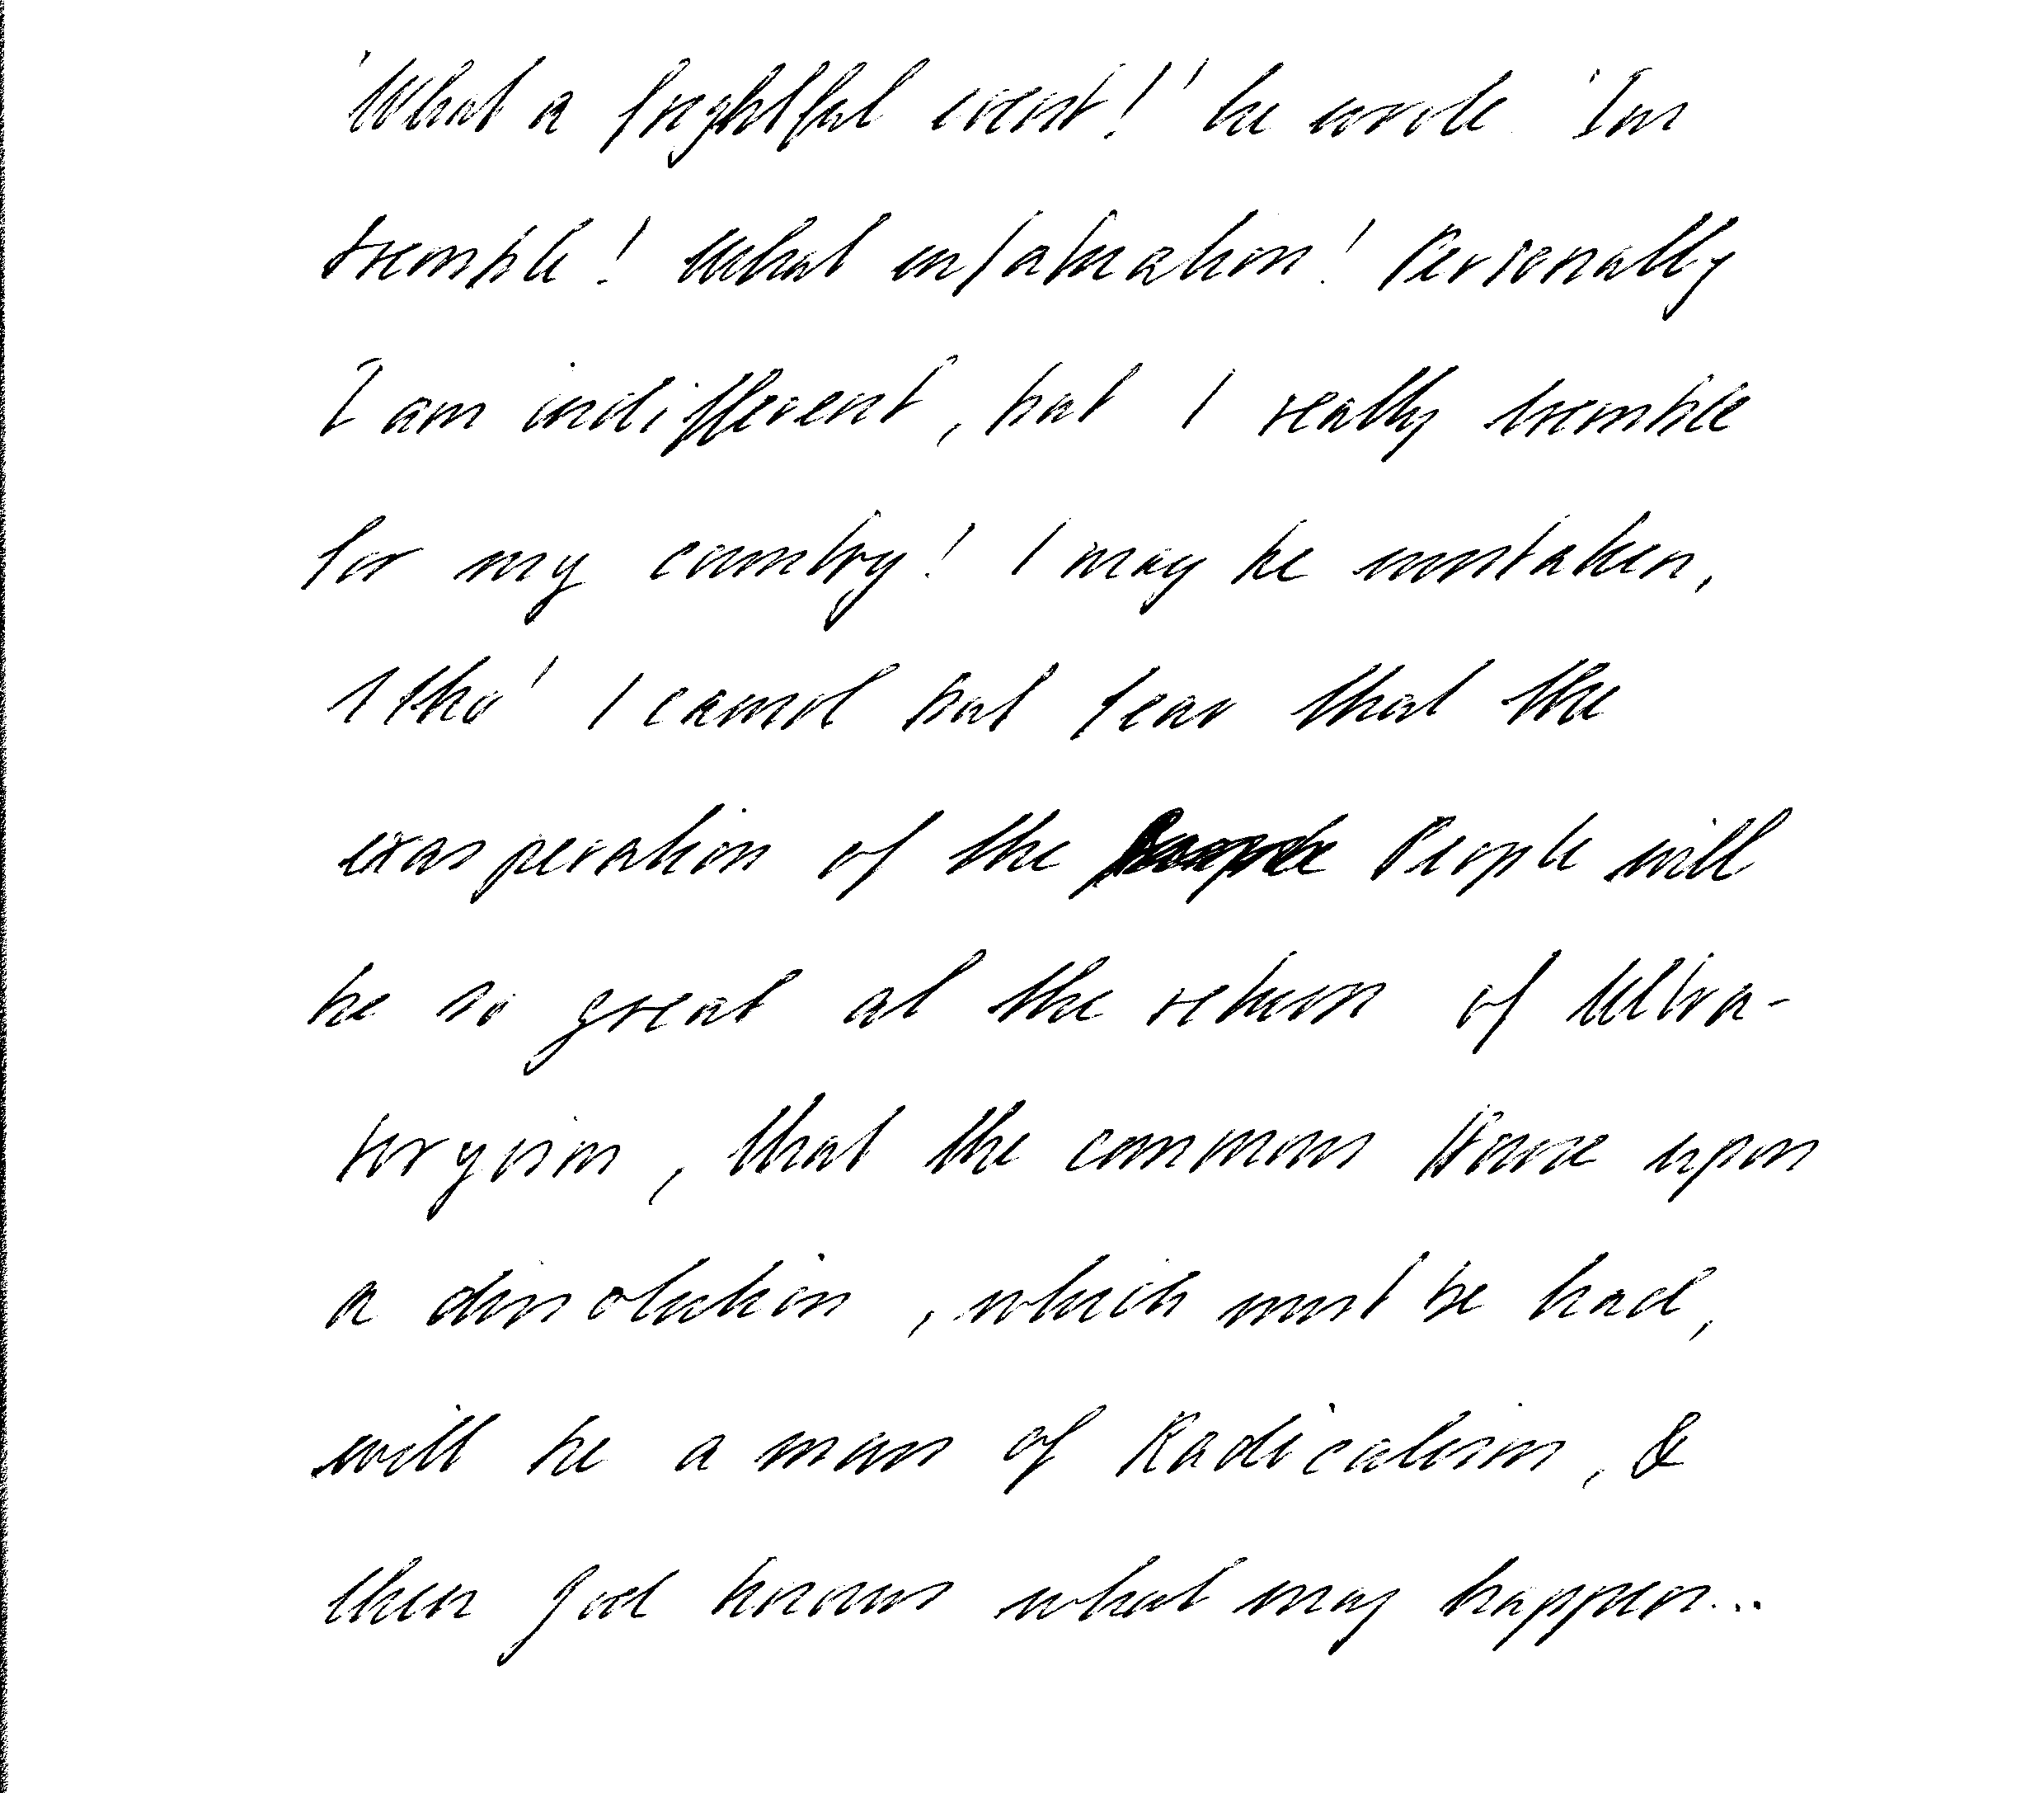 'What a frightful event!' he wrote. 'Im
tremble! What infatuation! Personally
I am indifferent, but I really tremble
for my country! I may be mistaken,
tho' I cannot but fear that the
exasperation of the People will
be so great at the return of Ultra-
toryism, that the commons House upon
a dissolution, which must be had,
will be a mass of Radicalism, &
then god knows what may happen...